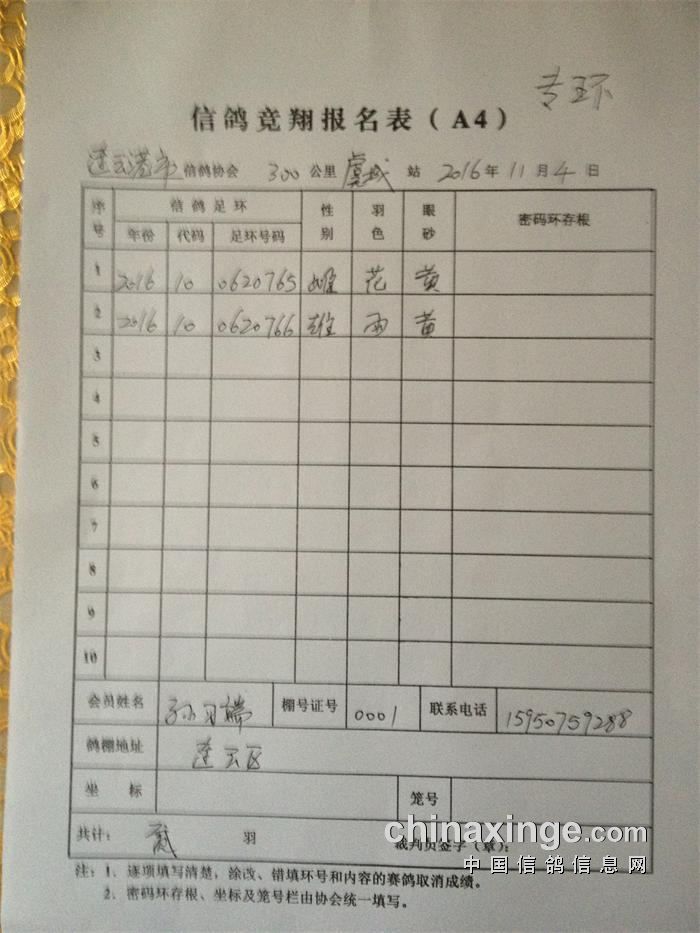 专环
信鸽竞翔报名表（A4）
连云港市 信鸽协会 300 公里 虞城 站 2016 年 11 月 4 日
序号 信鸽足环 性别 羽色 眼砂 密码环存根
年份 代码 足环号码
1 2016 10 0620765 雌 花 黄
2 2016 10 0620766 雄 雨 黄
3
4
5
6
7
8
9
10
会员姓名 孙 瑞 棚号证号 0001 联系电话 15950759288
鸽棚地址 连云区
坐标 笼号
共计： 贰 羽 裁判员签字（章）：
注：1、逐项填写清楚，涂改、错填环号和内容的赛鸽取消成绩。
2、密码环存根、坐标及笼号栏由协会统一填写。
chinaxinge.com
中国信鸽信息网